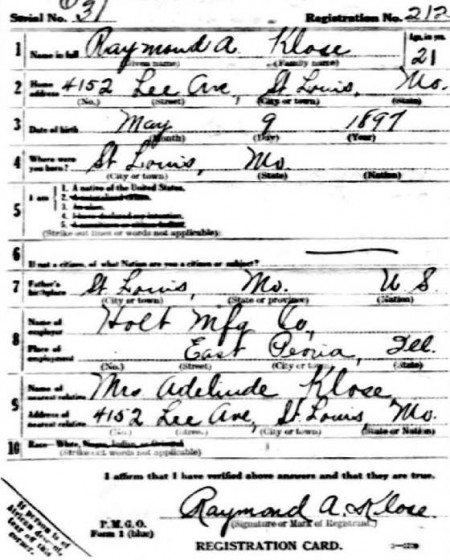 Serial No. 31 Registration No. 212
1 Name in full Raymond A. Klose Age, in yrs. 21
(Given name) (Family name)
2 Home address 4152 Lee Ave, St Louis, Mo.
(No.) (Street) (City or town) (State)
3 Date of birth May 9 1897
(Month) (Day) (Year)
4 Where were you born? St Louis, Mo.
(City or town) (State) (Nation)
5 I am 1. A native of the United States.
2. A naturalized citizen.
3. An alien.
4. I have declared my intention.
5. A noncitizen or citizen Indian.
(Strike out lines or words not applicable)
6 If not a citizen, of what Nation are you a citizen or subject?
7 Father's birthplace St Louis, Mo. U S.
(City or town) (State or province) (Nation)
8 Name of employer Holt Mfg Co,
Place of employment East Peoria, Ill.
(No.) (Street) (City or town) (State)
9 Name of nearest relative Mrs Adelaide Klose
Address of nearest relative 4152 Lee Ave, St Louis, Mo.
(No.) (Street) (City or town) (State or Nation)
10 Race—White, Negro, Indian, or Oriental
(Strike out words not applicable)
I affirm that I have verified above answers and that they are true.
Raymond A. Klose
P.M.G.O. (Signature or Mark of Registrant)
Form 1 (blue)
REGISTRATION CARD.
If person is of
African descent,
tear off this
corner.